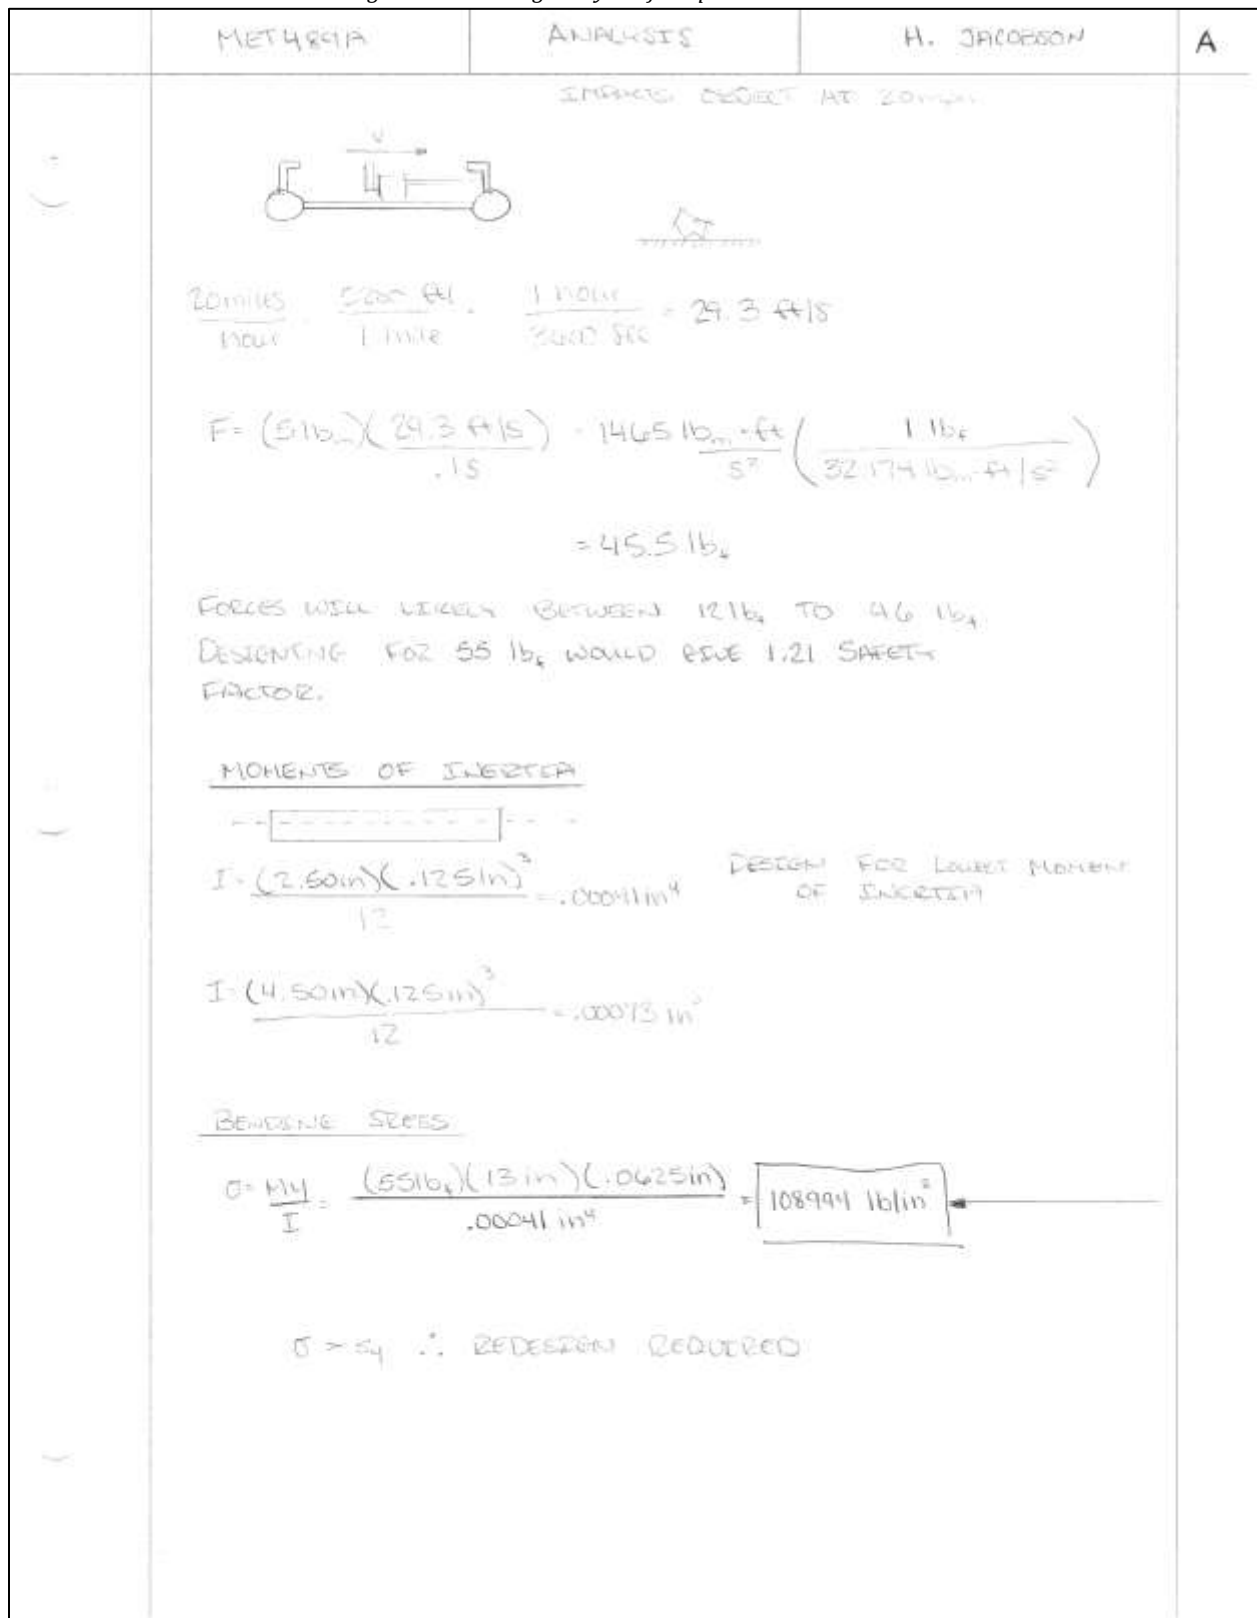 MET489A ANALYSIS H. JACOBSON A
IMPACTS OBJECT AT 20mph
V
20 miles / hour · 5280 ft / 1 mile · 1 hour / 3600 sec = 29.3 ft/s
F = (5 lbm)(29.3 ft/s / .1s) = 1465 lbm·ft / s² (1 lbf / 32.174 lbm·ft/s²)
= 45.5 lbf
FORCES WILL LIKELY BETWEEN 12 lbf TO 46 lbf
DESIGNING FOR 55 lbf WOULD GIVE 1.21 SAFETY
FACTOR.
MOMENTS OF INERTIA
I = (2.50in)(.125in)³ / 12 = .00041 in⁴
DESIGN FOR LOWEST MOMENT
OF INERTIA
I = (4.50in)(.125in)³ / 12 = .00073 in
BENDING STRESS
σ = My / I = (55 lbf)(13 in)(.0625in) / .00041 in⁴ = 108994 lb/in²
σ > Sy ∴ REDESIGN REQUIRED